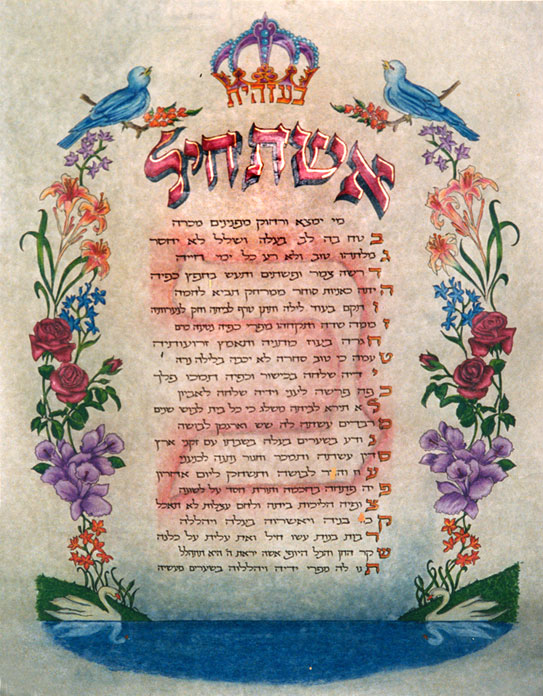 בעזהית
אשת חיל
מי ימצא ורחוק מפנינים מכרה
בטח בה לב בעלה ושלל לא יחסר
גמלתהו טוב ולא רע כל ימי חייה
דרשה צמר ופשתים ותעש בחפץ כפיה
היתה כאניות סוחר ממרחק תביא לחמה
ותקם בעוד לילה ותתן טרף לביתה וחק לנערותיה
זממה שדה ותקחהו מפרי כפיה נטעה כרם
חגרה בעוז מתניה ותאמץ זרועותיה
טעמה כי טוב סחרה לא יכבה בלילה נרה
ידיה שלחה בכישור וכפיה תמכו פלך
כפה פרשה לעני וידיה שלחה לאביון
לא תירא לביתה משלג כי כל ביתה לבוש שנים
מרבדים עשתה לה שש וארגמן לבושה
נודע בשערים בעלה בשבתו עם זקני ארץ
סדין עשתה ותמכר וחגור נתנה לכנעני
עז והדר לבושה ותשחק ליום אחרון
פיה פתחה בחכמה ותורת חסד על לשונה
צופיה הליכות ביתה ולחם עצלות לא תאכל
קמו בניה ויאשרוה בעלה ויהללה
רבות בנות עשו חיל ואת עלית על כלנה
שקר החן והבל היופי אשה יראת ה' היא תתהלל
תנו לה מפרי ידיה ויהללוה בשערים מעשיה